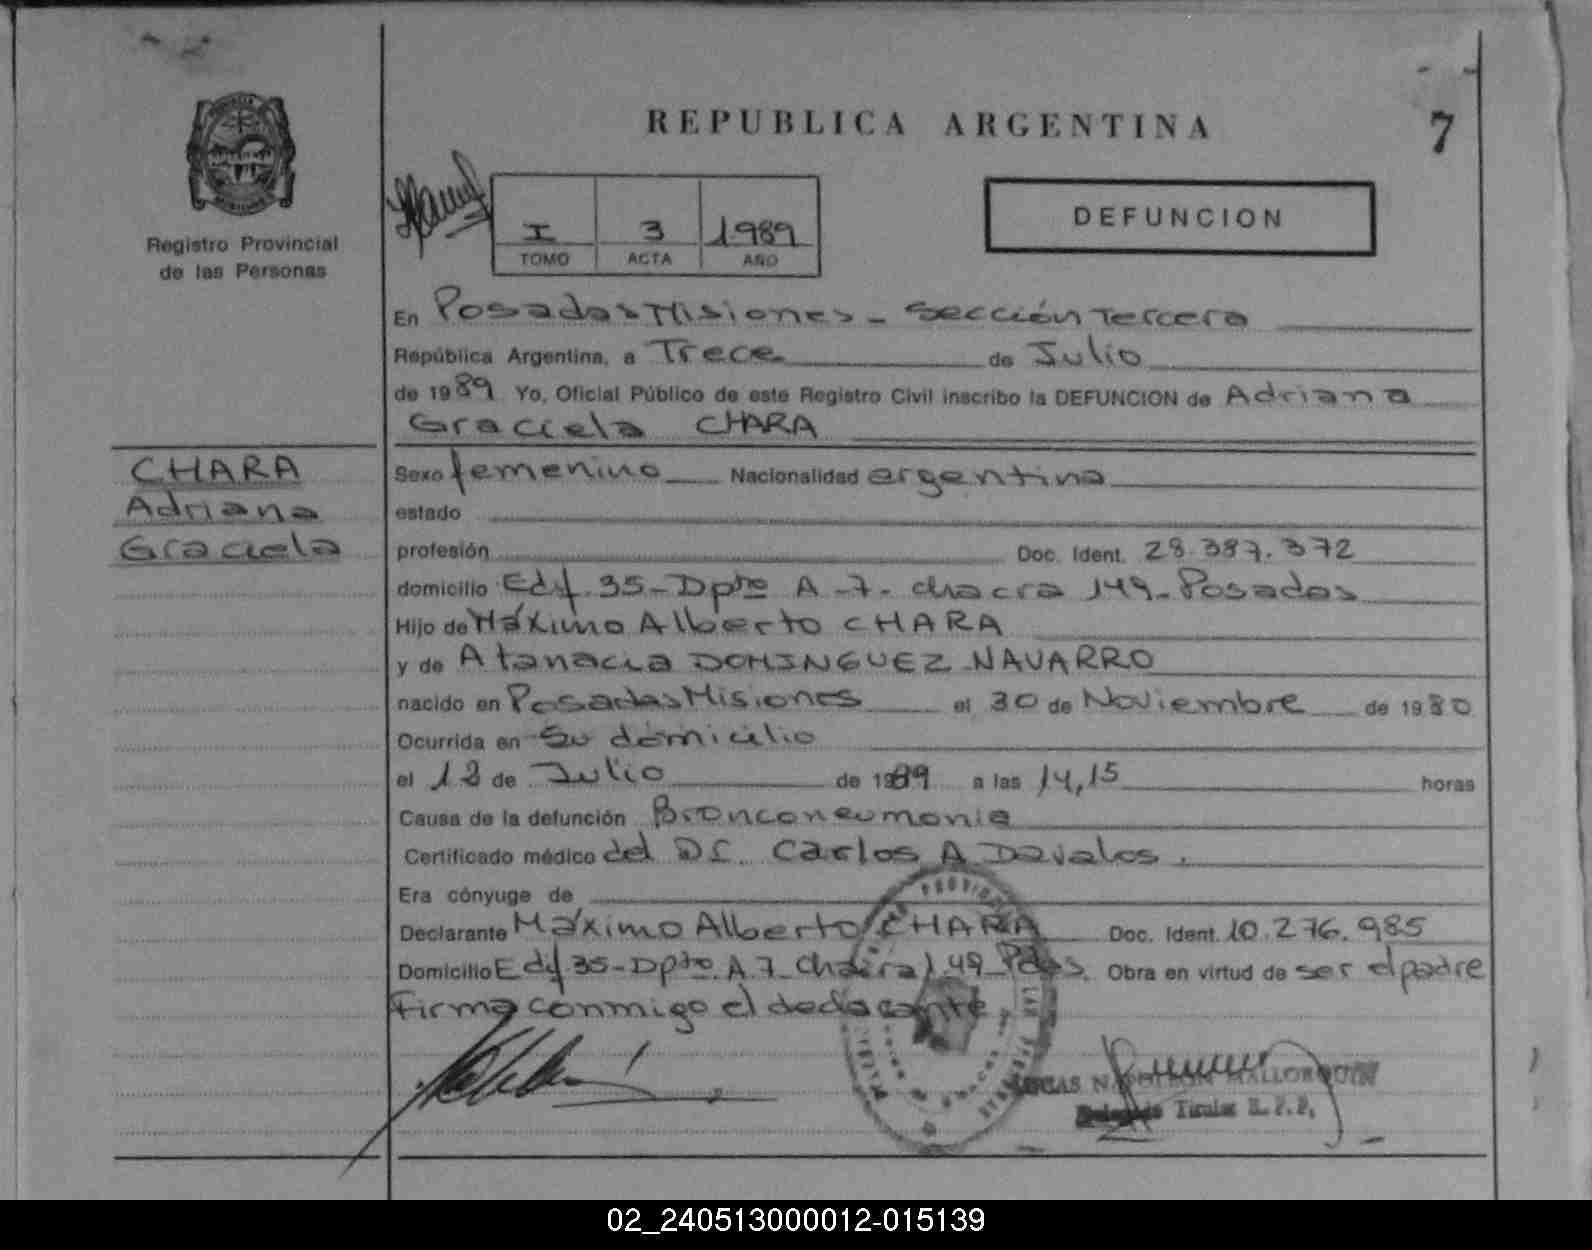 REPUBLICA ARGENTINA
7
Registro Provincial
de las Personas
I 3 1989
TOMO ACTA AÑO
DEFUNCION
En Posadas Misiones - Sección Tercera
República Argentina, a Trece de Julio
de 1989 Yo, Oficial Público de este Registro Civil inscribo la DEFUNCION de Adriana
Graciela CHARA
CHARA
Adriana
Graciela
Sexo femenino Nacionalidad argentina
estado
profesión Doc. Ident. 28.387.372
domicilio Edif. 35 - Dpto A - 7 - chacra 149 - Posadas
Hijo de Máximo Alberto CHARA
y de Atanacia DOMINGUEZ NAVARRO
nacido en Posadas Misiones el 30 de Noviembre de 1980
Ocurrida en Su domicilio
el 12 de Julio de 1989 a las 14,15 horas
Causa de la defunción Bronconeumonia
Certificado médico del Dr. Carlos A Davalos.
Era cónyuge de
Declarante Máximo Alberto CHARA Doc. Ident. 10.276.985
Domicilio Edif 35 - Dpto. A.7 - Chacra 149 - Pdas. Obra en virtud de ser el padre
Firma conmigo el declarante
LUCAS NAPOLEON MALLORQUIN
Titular R.P.P.
02_240513000012-015139